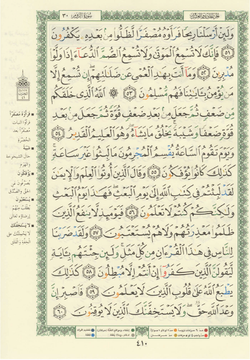 الجزء الحادي والعشرون سورة الروم ٣٠
وَلَئِنْ أَرْسَلْنَا رِيحًا فَرَأَوْهُ مُصْفَرًّا لَّظَلُّوا۟ مِنۢ بَعْدِهِۦ يَكْفُرُونَ ٥١
فَإِنَّكَ لَا تُسْمِعُ ٱلْمَوْتَىٰ وَلَا تُسْمِعُ ٱلصُّمَّ ٱلدُّعَآءَ إِذَا وَلَّوْا۟
مُدْبِرِينَ ٥٢ وَمَآ أَنتَ بِهَٰدِ ٱلْعُمْىِ عَن ضَلَٰلَتِهِمْ إِن تُسْمِعُ إِلَّا
مَن يُؤْمِنُ بِـَٔايَٰتِنَا فَهُم مُّسْلِمُونَ ٥٣ ٱللَّهُ ٱلَّذِى خَلَقَكُم
مِّن ضَعْفٍ ثُمَّ جَعَلَ مِنۢ بَعْدِ ضَعْفٍ قُوَّةً ثُمَّ جَعَلَ مِنۢ بَعْدِ
قُوَّةٍ ضَعْفًا وَشَيْبَةً يَخْلُقُ مَا يَشَآءُ وَهُوَ ٱلْعَلِيمُ ٱلْقَدِيرُ ٥٤
وَيَوْمَ تَقُومُ ٱلسَّاعَةُ يُقْسِمُ ٱلْمُجْرِمُونَ مَا لَبِثُوا۟ غَيْرَ سَاعَةٍ
كَذَٰلِكَ كَانُوا۟ يُؤْفَكُونَ ٥٥ وَقَالَ ٱلَّذِينَ أُوتُوا۟ ٱلْعِلْمَ وَٱلْإِيمَٰنَ
لَقَدْ لَبِثْتُمْ فِى كِتَٰبِ ٱللَّهِ إِلَىٰ يَوْمِ ٱلْبَعْثِ فَهَٰذَا يَوْمُ ٱلْبَعْثِ
وَلَٰكِنَّكُمْ كُنتُمْ لَا تَعْلَمُونَ ٥٦ فَيَوْمَئِذٍ لَّا يَنفَعُ ٱلَّذِينَ
ظَلَمُوا۟ مَعْذِرَتُهُمْ وَلَا هُمْ يُسْتَعْتَبُونَ ٥٧ وَلَقَدْ ضَرَبْنَا
لِلنَّاسِ فِى هَٰذَا ٱلْقُرْءَانِ مِن كُلِّ مَثَلٍ وَلَئِن جِئْتَهُم بِـَٔايَةٍ
لَّيَقُولَنَّ ٱلَّذِينَ كَفَرُوٓا۟ إِنْ أَنتُمْ إِلَّا مُبْطِلُونَ ٥٨ كَذَٰلِكَ
يَطْبَعُ ٱللَّهُ عَلَىٰ قُلُوبِ ٱلَّذِينَ لَا يَعْلَمُونَ ٥٩ فَٱصْبِرْ إِنَّ
وَعْدَ ٱللَّهِ حَقٌّ وَلَا يَسْتَخِفَّنَّكَ ٱلَّذِينَ لَا يُوقِنُونَ ٦٠
٤١٠